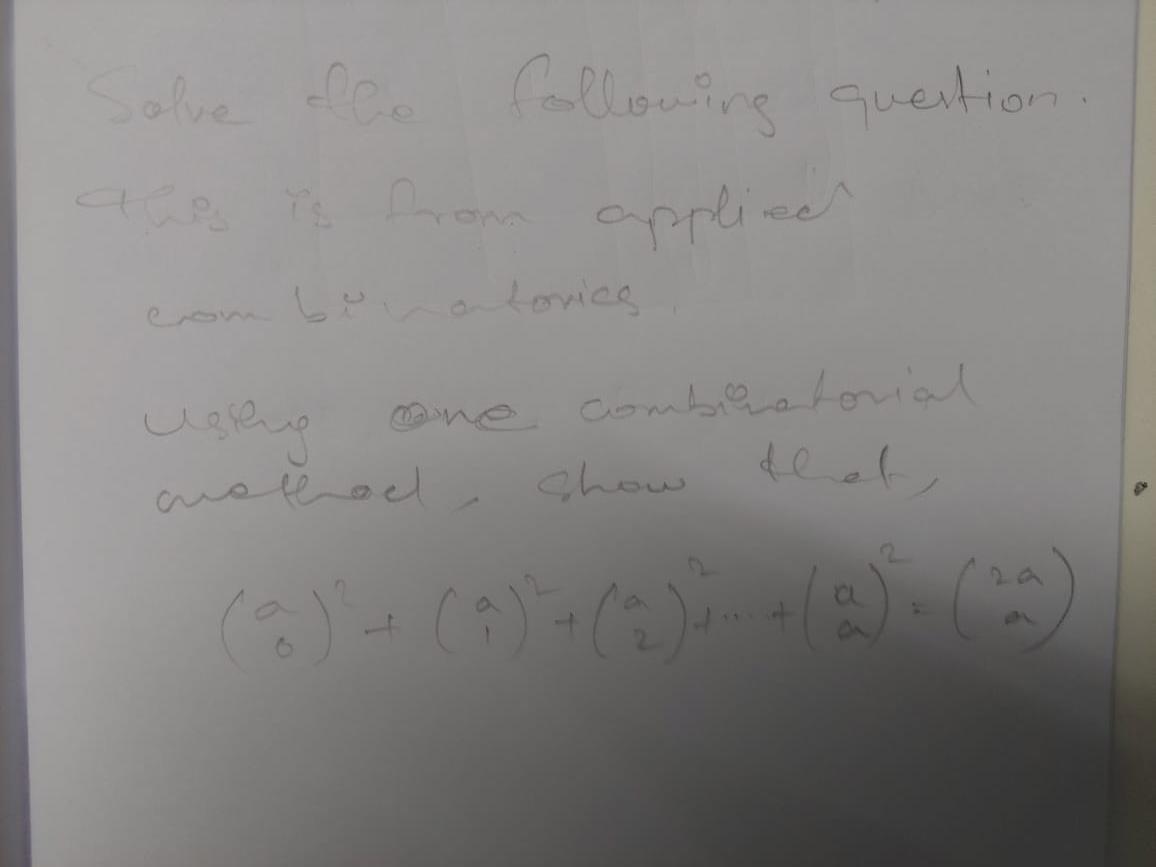 Solve the following question.
This is from applied
combinatorics.
Using one combinatorial
method, show that,
(a 0)² + (a 1)² + (a 2)² + ... + (a a)² = (2a a)